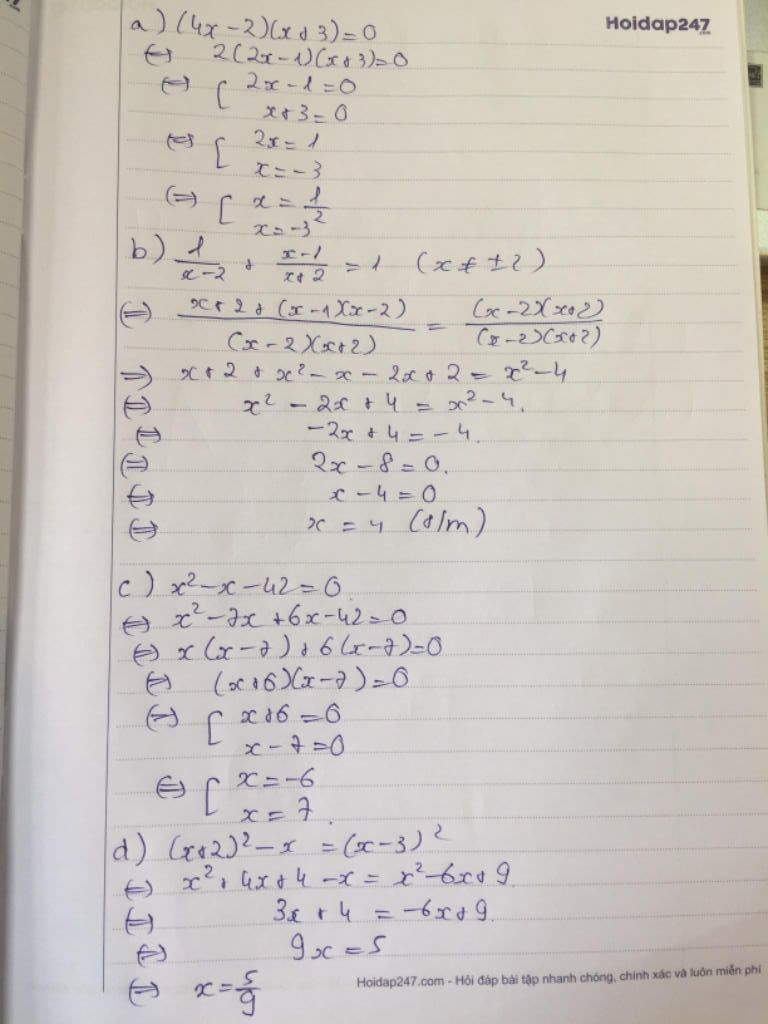 Hoidap247
.com
a) (4x-2)(x+3)=0
⇔ 2(2x-1)(x+3)=0
⇔ [ 2x-1=0
x+3=0
⇔ [ 2x=1
x=-3
⇔ [ x=1/2
x=-3
b) 1/(x-2) + (x-1)/(x+2) = 1 (x≠±2)
⇔ (x+2+(x-1)(x-2))/((x-2)(x+2)) = ((x-2)(x+2))/((x-2)(x+2))
⇒ x+2+x²-x-2x+2=x²-4
⇔ x²-2x+4=x²-4.
⇔ -2x+4=-4.
⇔ 2x-8=0.
⇔ x-4=0
⇔ x=4 (t/m)
c) x²-x-42=0
⇔ x²-7x+6x-42=0
⇔ x(x-7)+6(x-7)=0
⇔ (x+6)(x-7)=0
⇔ [ x+6=0
x-7=0
⇔ [ x=-6
x=7.
d) (x+2)²-x=(x-3)²
⇔ x²+4x+4-x=x²-6x+9
⇔ 3x+4=-6x+9.
⇔ 9x=5
⇔ x=5/9
Hoidap247.com - Hỏi đáp bài tập nhanh chóng, chính xác và luôn miễn phí